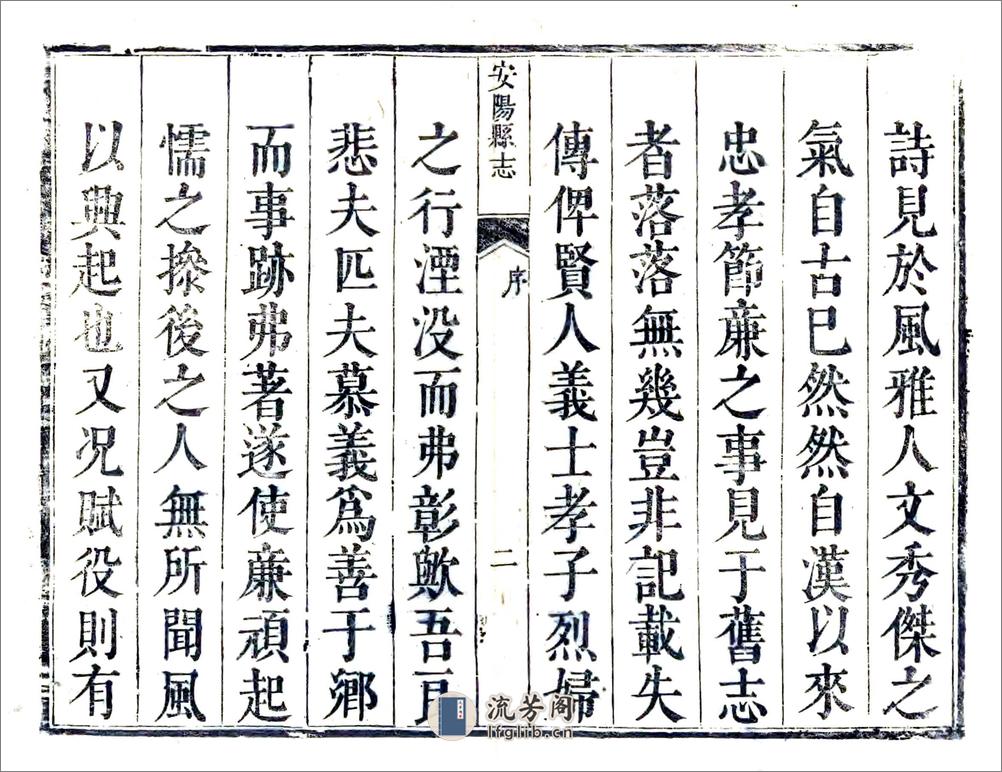 詩見於風雅人文秀傑之
氣自古已然然自漢以來
忠孝節亷之事見于舊志
者落落無幾豈非記載失
傳俾賢人義士孝子烈婦
安陽縣志
序
二
之行湮没而弗彰歟吾
悲夫匹夫慕義爲善于鄉
而事跡弗著遂使亷頑起
懦之摻後之人無所聞風
以興起也又况賦役則有
流芳阁
lfglib.cn